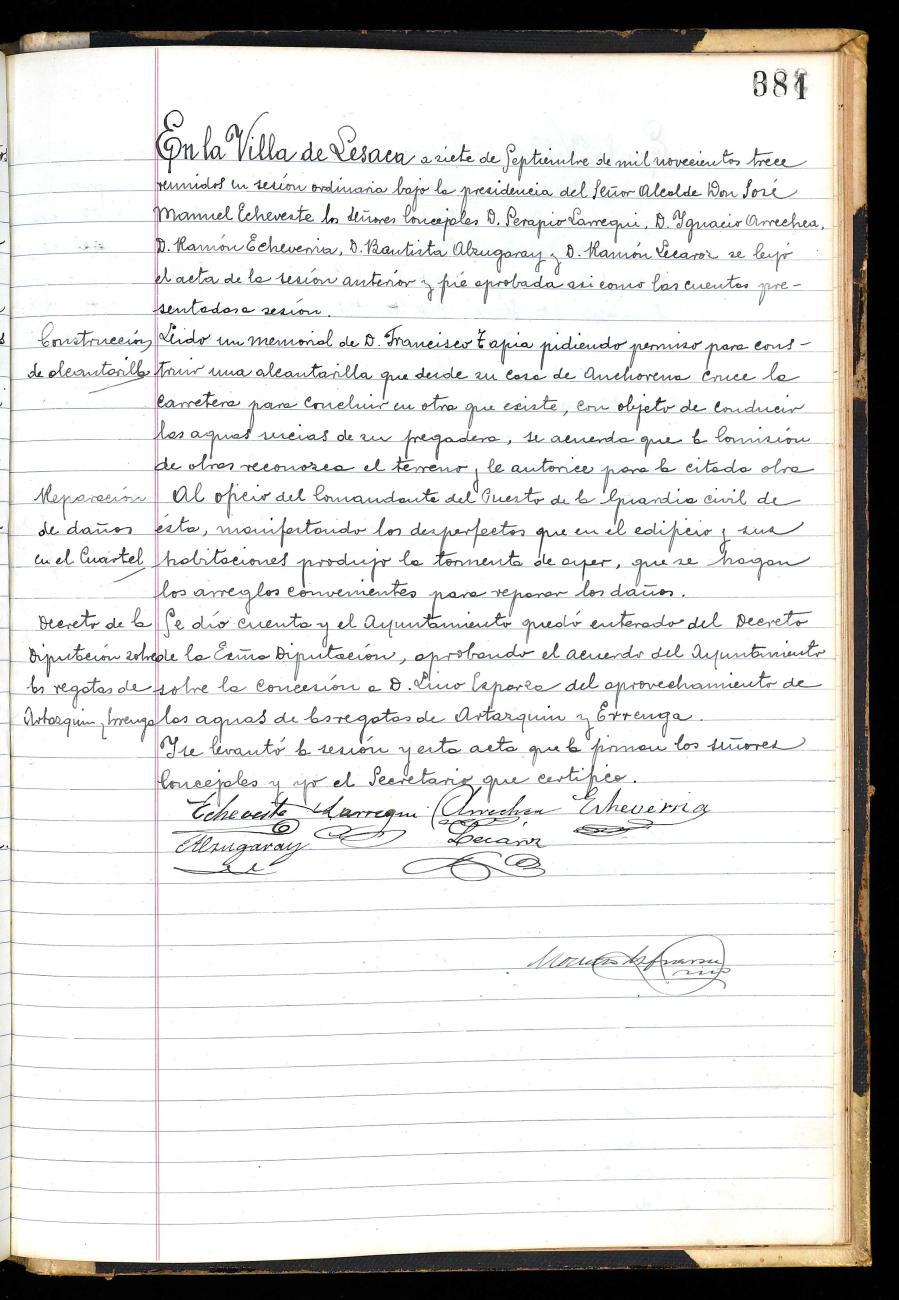 681
En la Villa de Lesaca a siete de Septiembre de mil novecientos trece
reunidos en sesión ordinaria bajo la presidencia del Señor Alcalde Don José
Manuel Echeveste los señores Concejales D. Serapio Larregui, D. Ignacio Arrechea,
D. Ramón Echeverria, D. Bautista Alzugaray y D. Ramón Lecaroz se leyó
el acta de la sesión anterior y fué aprobada asi como las cuentas pre-
sentadas a sesión.
Construcción
de alcantarilla
Leido un memorial de D. Francisco Tapia pidiendo permiso para cons-
truir una alcantarilla que desde su casa de Anchorena cruce la
carretera para concluir en otra que existe, con objeto de conducir
las aguas sucias de su fregadera, se acuerda que la Comisión
de obras reconozca el terreno y le autorice para la citada obra
Reparación
de daños
en el Cuartel
Al oficio del Comandante del Puesto de la Guardia civil de
ésta, manifestando los desperfectos que en el edificio y sus
habitaciones produjo la tormenta de ayer, que se hagan
los arreglos convenientes para reparar los daños.
Decreto de la
Diputación sobre
las regatas de
Artazquin y Errenga
Se dió cuenta y el Ayuntamiento quedó enterado del Decreto
de la Exma Diputación, aprobando el acuerdo del Ayuntamiento
sobre la concesión a D. Lino Esparza del aprovechamiento de
las aguas de las regatas de Artazquin y Errenga.
Y se levantó la sesión y esta acta que la firman los señores
Concejales y yo el Secretario que certifico.
Echeveste Larregui Arrechea Echeverria
Alzugaray Lecároz